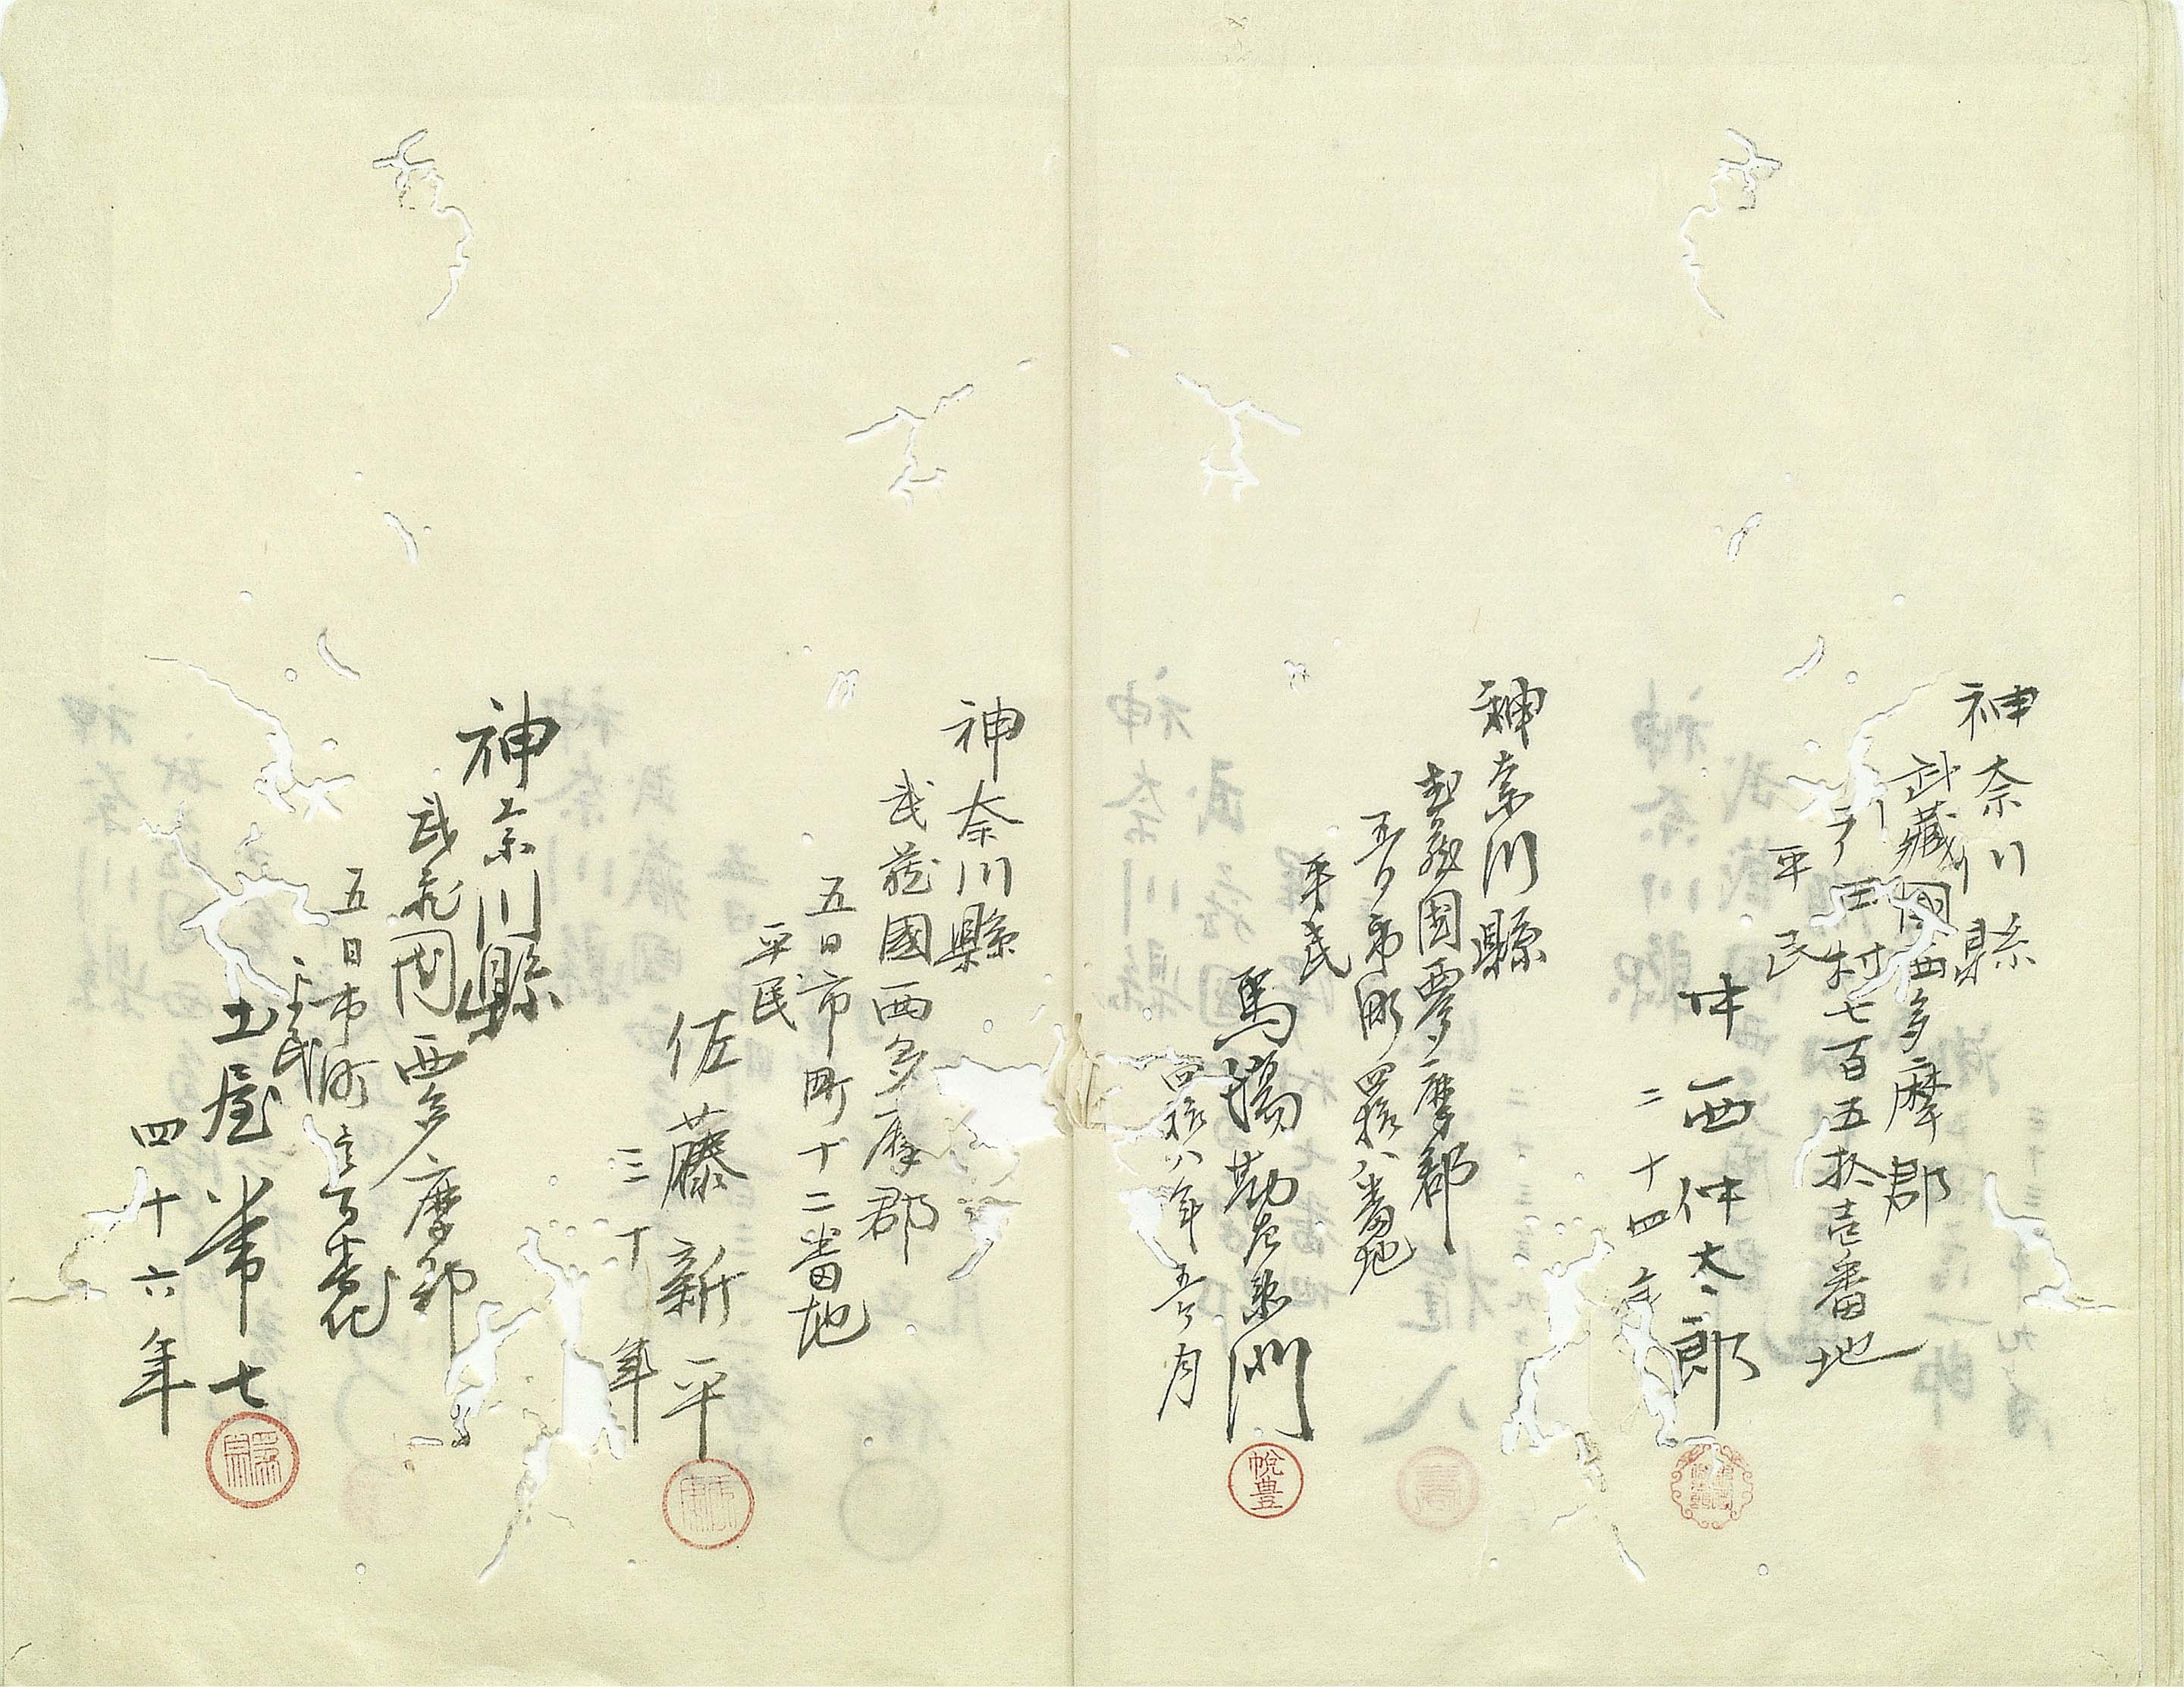 神奈川縣
武藏國西多摩郡
村七百五拾壱番地
平民
中西仲太郎
二十四年
神奈川縣
武蔵國西多摩郡
五日市町四拾八番地
平民
馬場勘左衛門
四拾八年五ヶ月
悦豊
神奈川縣
武蔵國西多摩郡
五日市町十二番地
平民
佐藤新平
三十年
神奈川縣
武蔵国西多摩郡
五日市町
平民
土屋常七
四十六年